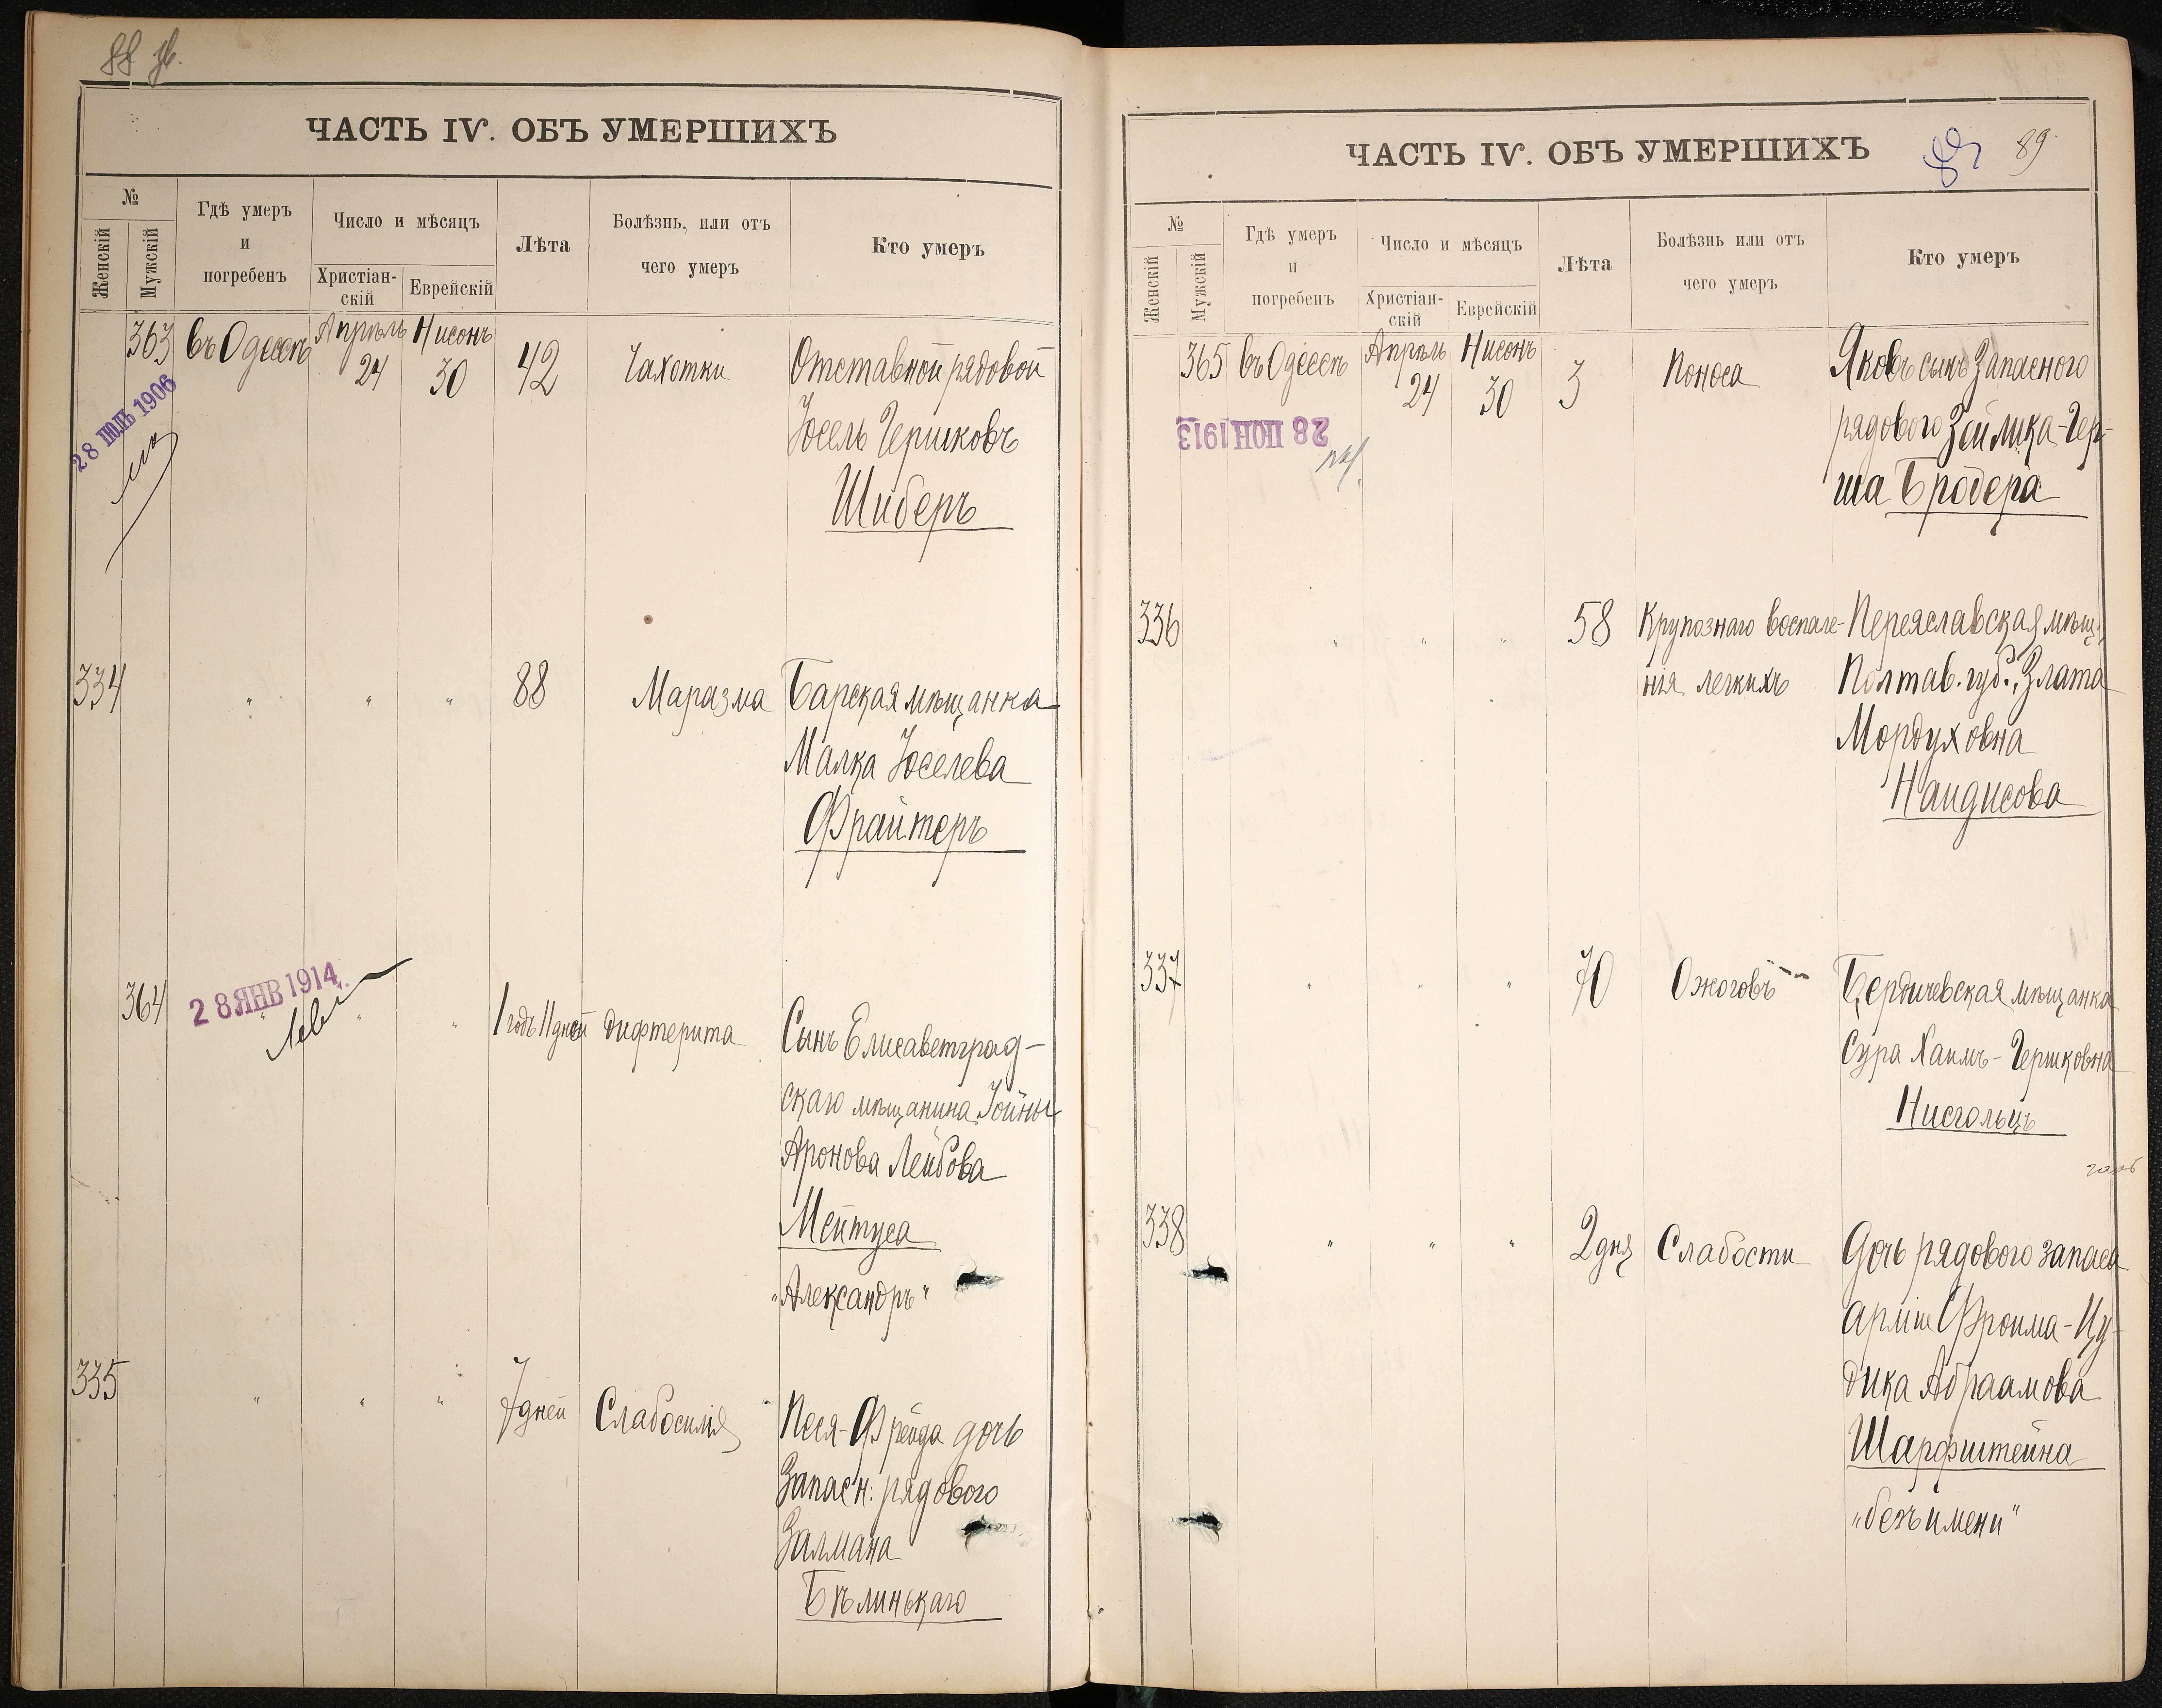 88 об.
ЧАСТЬ IV. ОБЪ УМЕРШИХЪ
№
Женскій
Мужскій
Гдѣ умеръ
и
погребенъ
Число и мѣсяцъ
Христіан-
скій
Еврейскій
Лѣта
Болѣзнь, или отъ
чего умеръ
Кто умеръ
363 въ Одессѣ Апрѣль 24 Нисонъ 30 42 Чахотки Отставной рядовой
Іосель Гершковъ
Шиберъ
28 ІЮЛЬ 1906
334 " " " 88 Маразма Барская мѣщанка
Малка Іоселева
Фрайтеръ
28 ЯНВ 1914
364 " " " 1 годъ 11 дней дифтерита Сынъ Елисаветград-
скаго мѣщанина Іойны
Аронова Лейбова
Мейтуса
"Александръ"
335 " " " 7 дней Слабосилія Песя-Фрейда дочь
Запасн: рядового
Залмана
Бѣлинькаго
ЧАСТЬ IV. ОБЪ УМЕРШИХЪ
89 89
№
Женскій
Мужскій
Гдѣ умеръ
и
погребенъ
Число и мѣсяцъ
Христіан-
скій
Еврейскій
Лѣта
Болѣзнь или отъ
чего умеръ
Кто умеръ
365 въ Одессѣ Апрѣль 24 Нисонъ 30 3 Поноса Яковъ сынъ Запасного
рядового Зейлика-Гер-
ша Бродера
28 ІЮН 1913
336 " " " 58 Крупознаго воспале- Переяславская мѣщ:
нія легкихъ Полтав. губ., Злата
Мордуховна
Найдисова
337 " " " 70 Ожоговъ Бердичевская мѣщанка
Сура Хаимъ-Гершковна
Нисгольцъ
338 " " " 2 дня Слабости Дочь рядового запаса
арміи Фроима-Иу-
дика Абраамова
Шарфштейна
"безъ имени"